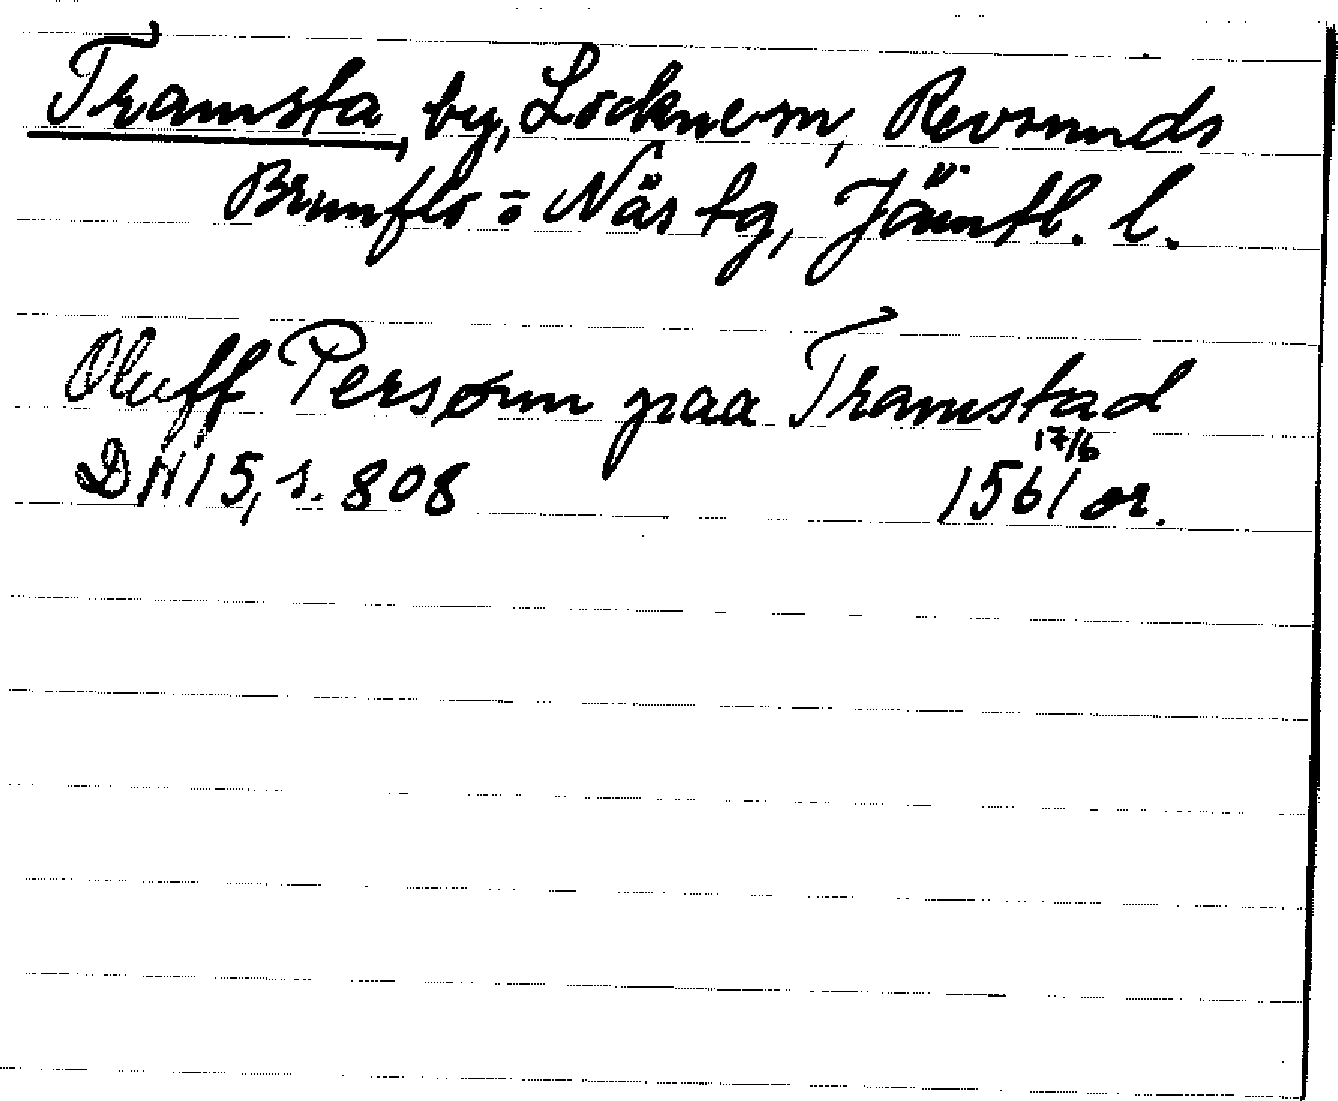 Tramsta, by, Locknem, Revsunds
Brunflo o Näs tg, Jämtl. l.
Oluff Persønn paa Tramstad
17/6
DN 15, s. 808 1561 or.